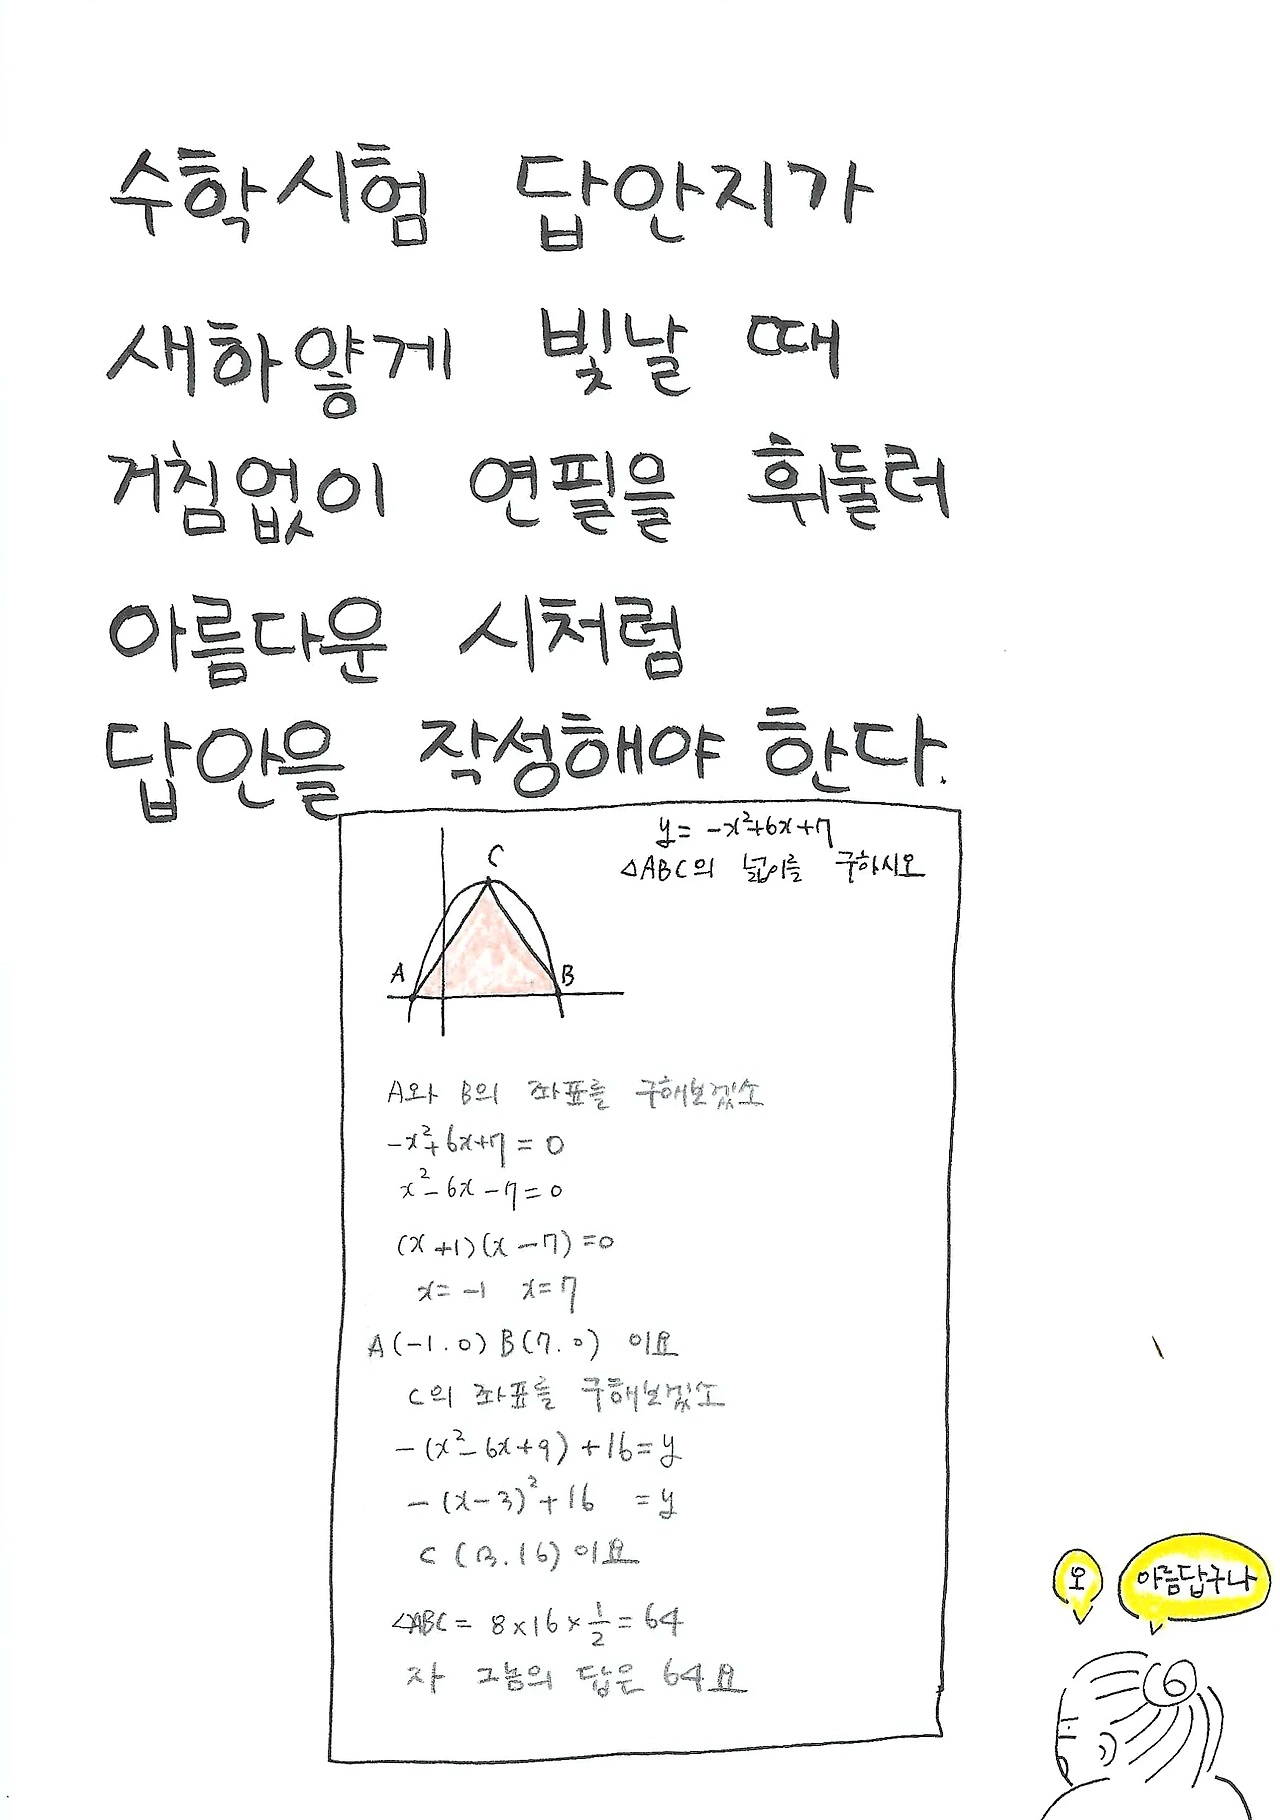 수학시험 답안지가
새하얗게 빛날 때
거침없이 연필을 휘둘러
아름다운 시처럼
답안을 작성해야 한다.
y = -x²+6x+7
△ABC의 넓이를 구하시오
C
A
B
A와 B의 좌표를 구해보겠소
-x²+6x+7 = 0
x²-6x-7=0
(x+1)(x-7)=0
x=-1 x=7
A(-1.0) B(7.0) 이요
C의 좌표를 구해보겠소
-(x²-6x+9)+16=y
-(x-3)²+16 =y
C (3.16) 이요
△ABC = 8×16×1/2=64
자 그놈의 답은 64요
오
아름답구나